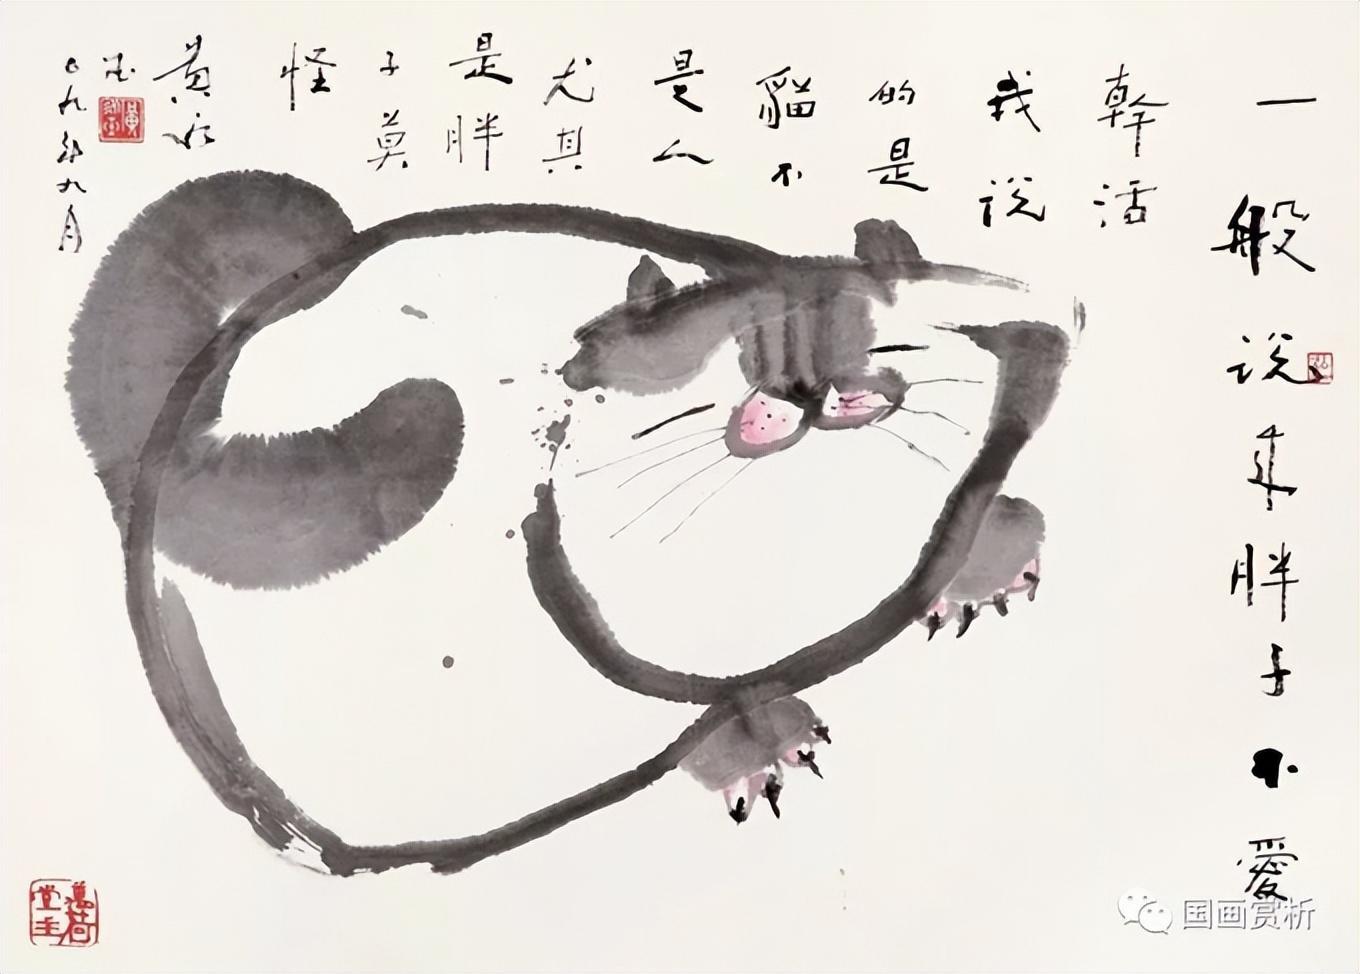 一般说来胖子不爱
幹活
我说
的是
貓不
是人
尤其
是胖
子莫
怪
黄永
玉
九年九月
黄永玉
萬荷堂主
国画赏析